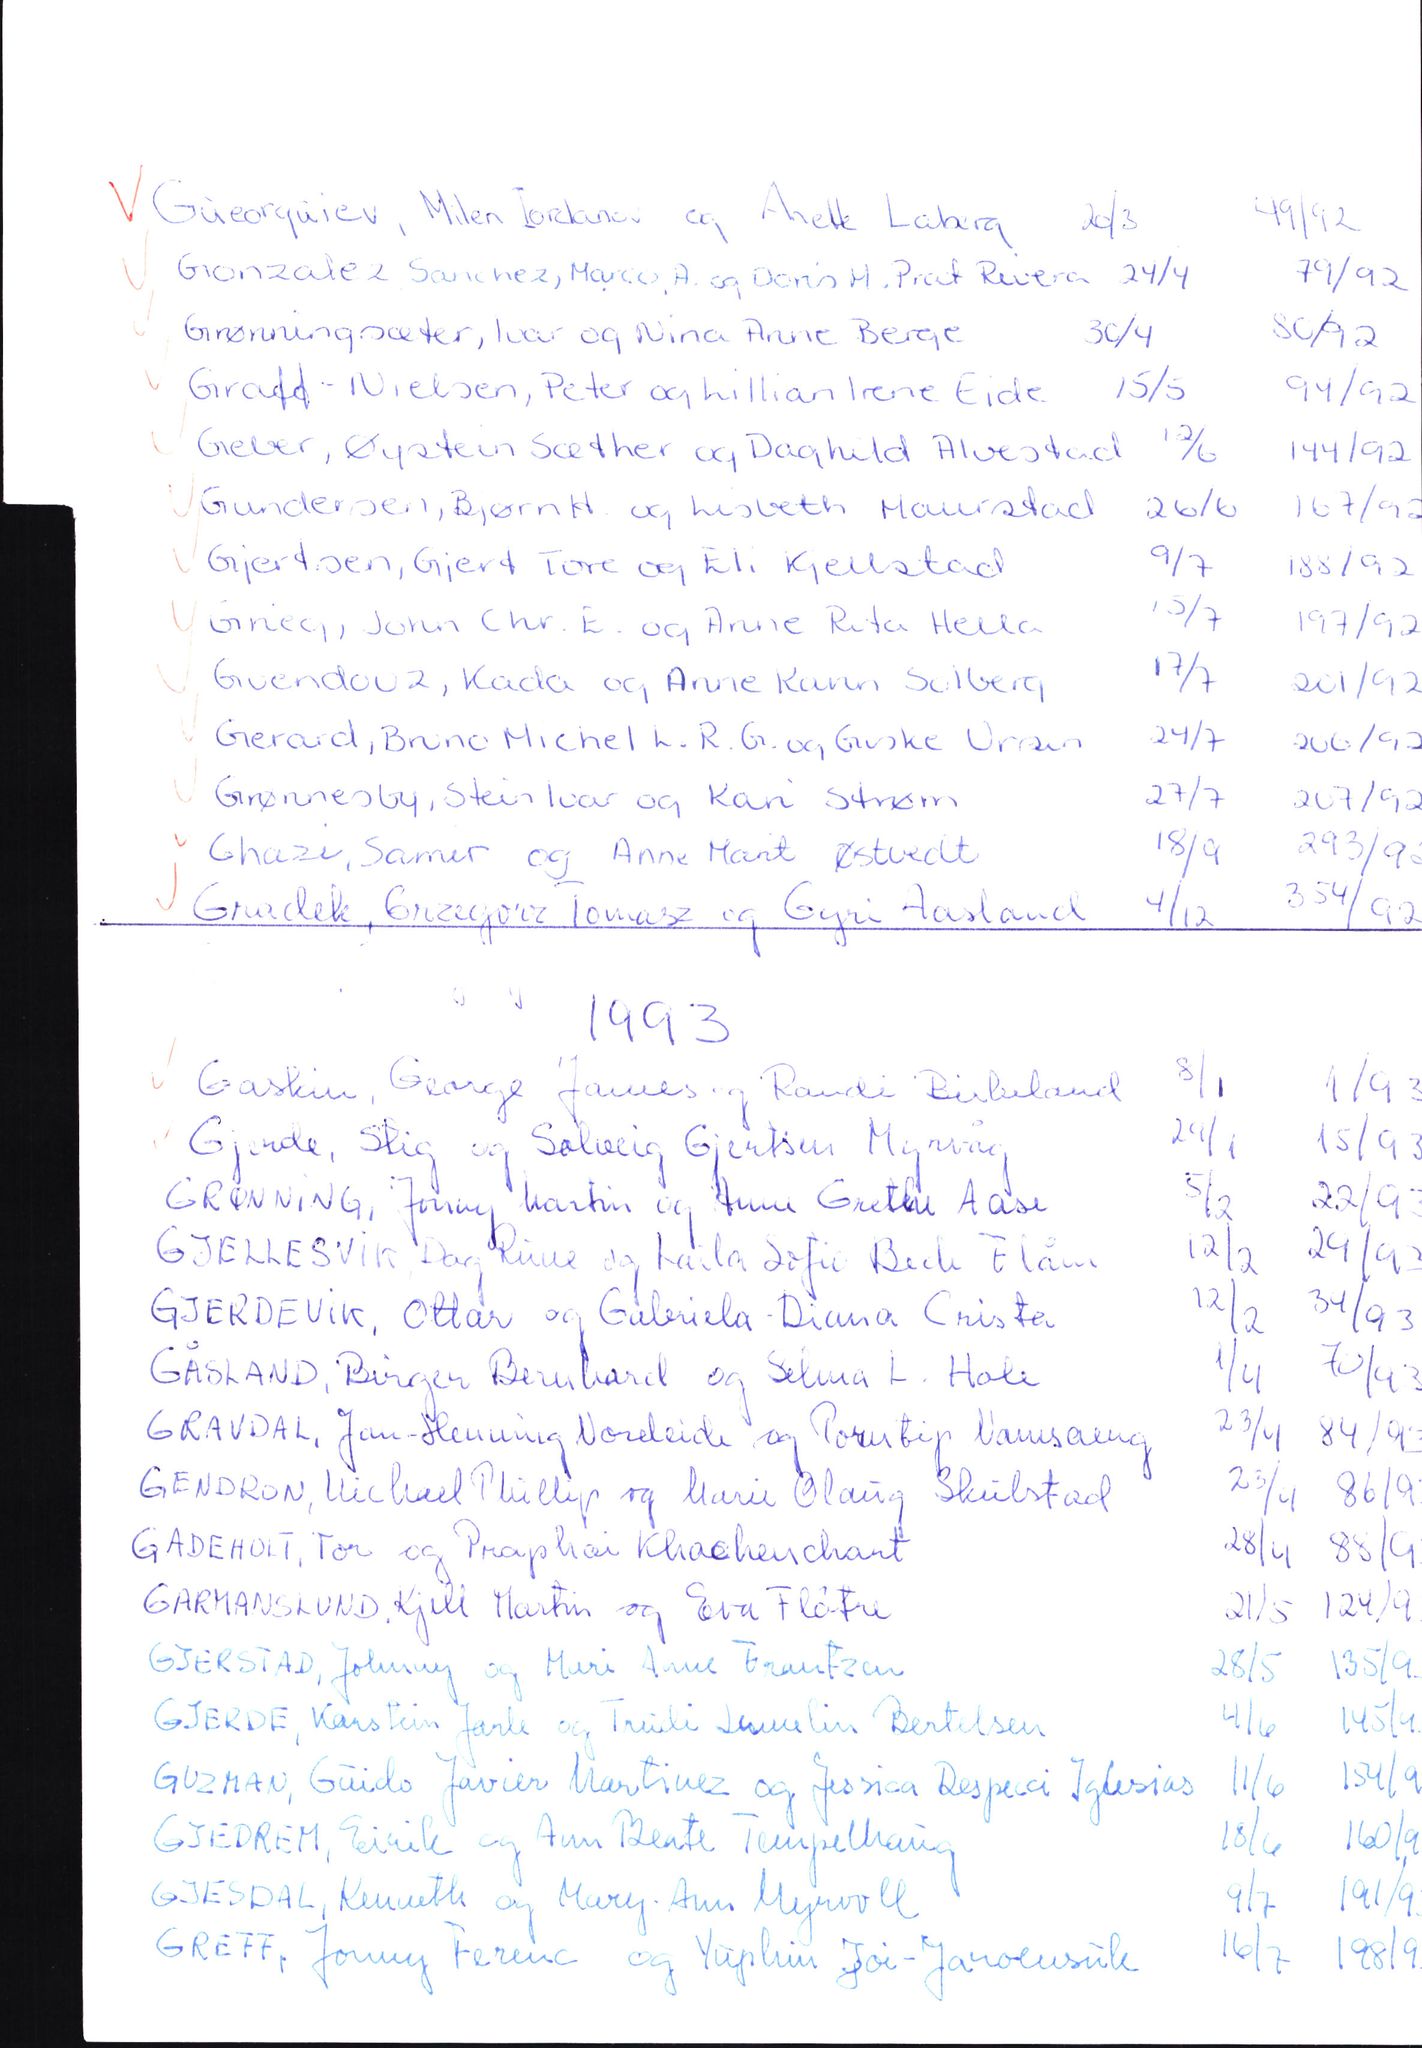 Gueorguiev, Milen Iordanov og Anette Laberg 20/3 49/92
Gonzalez Sanchez, Marco A. og Doris M. Prat Rivera 24/4 79/92
Grønningsæter, Ivar og Nina Anne Berge 30/4 80/92
Graff-Nielsen, Peter og Lillian Irene Eide 15/5 94/92
Geber, Øystein Sæther og Daghild Alvestad 12/6 144/92
Gundersen, Bjørn H. og Lisbeth Maurstad 26/6 167/92
Gjertsen, Gjert Tore og Eli Kjellstad 9/7 188/92
Grieg, John Chr. E. og Anne Rita Hella 15/7 197/92
Guendouz, Kada og Anne Karin Solberg 17/7 201/92
Gerard, Bruno Michel L. R. G. og Guske Ursin 24/7 206/92
Grønnesby, Stein Ivar og Kari Strøm 27/7 207/92
Ghazi, Samir og Anne Marit Østvedt 18/9 293/92
Gruidek, Grzegorz Tomasz og Gyri Aasland 4/12 354/92
1993
Gaskin, George James og Randi Birkeland 8/1 1/93
Gjerde, Stig og Solveig Gjertsen Myrvåg 29/1 15/93
GRØNNING, Jonny Martin og Anne Grethe Aase 5/2 22/93
GJELLESVIK, Dag Rune og Laila Sofie Bede Flåm 12/2 29/93
GJERDEVIK, Ottar og Gabriela-Diana Crista 12/2 34/93
GÅSLAND, Birger Bernhard og Selma L. Hole 1/4 70/93
GRAVDAL, Jan-Henning Nordeide og Porntip Namsaeng 23/4 84/93
GENDRON, Michael Phillip og Marie Olaug Skulstad 23/4 86/9
GADEHOLT, Tor og Praphai Khachenchart 28/4 88/9
GARMANSLUND, Kjell Martin og Eva Fløtre 21/5 124/9
GJERSTAD, Johnny og Mari Anne Frantzen 28/5 135/9
GJERDE, Karstein Jarle og Trudi Lemelin Bertelsen 4/6 145/9
GUZMAN, Guido Javier Martinez og Jessica Despeci Iglesias 11/6 154/9
GJEDREM, Eirik og Ann Bente Tempelhaug 18/6 160/9
GJESDAL, Kenneth og Mary-Ann Myrvoll 9/7 191/9
GREFF, Jonny Ferenc og Yuphin Joi-Jaroensuk 16/7 198/9